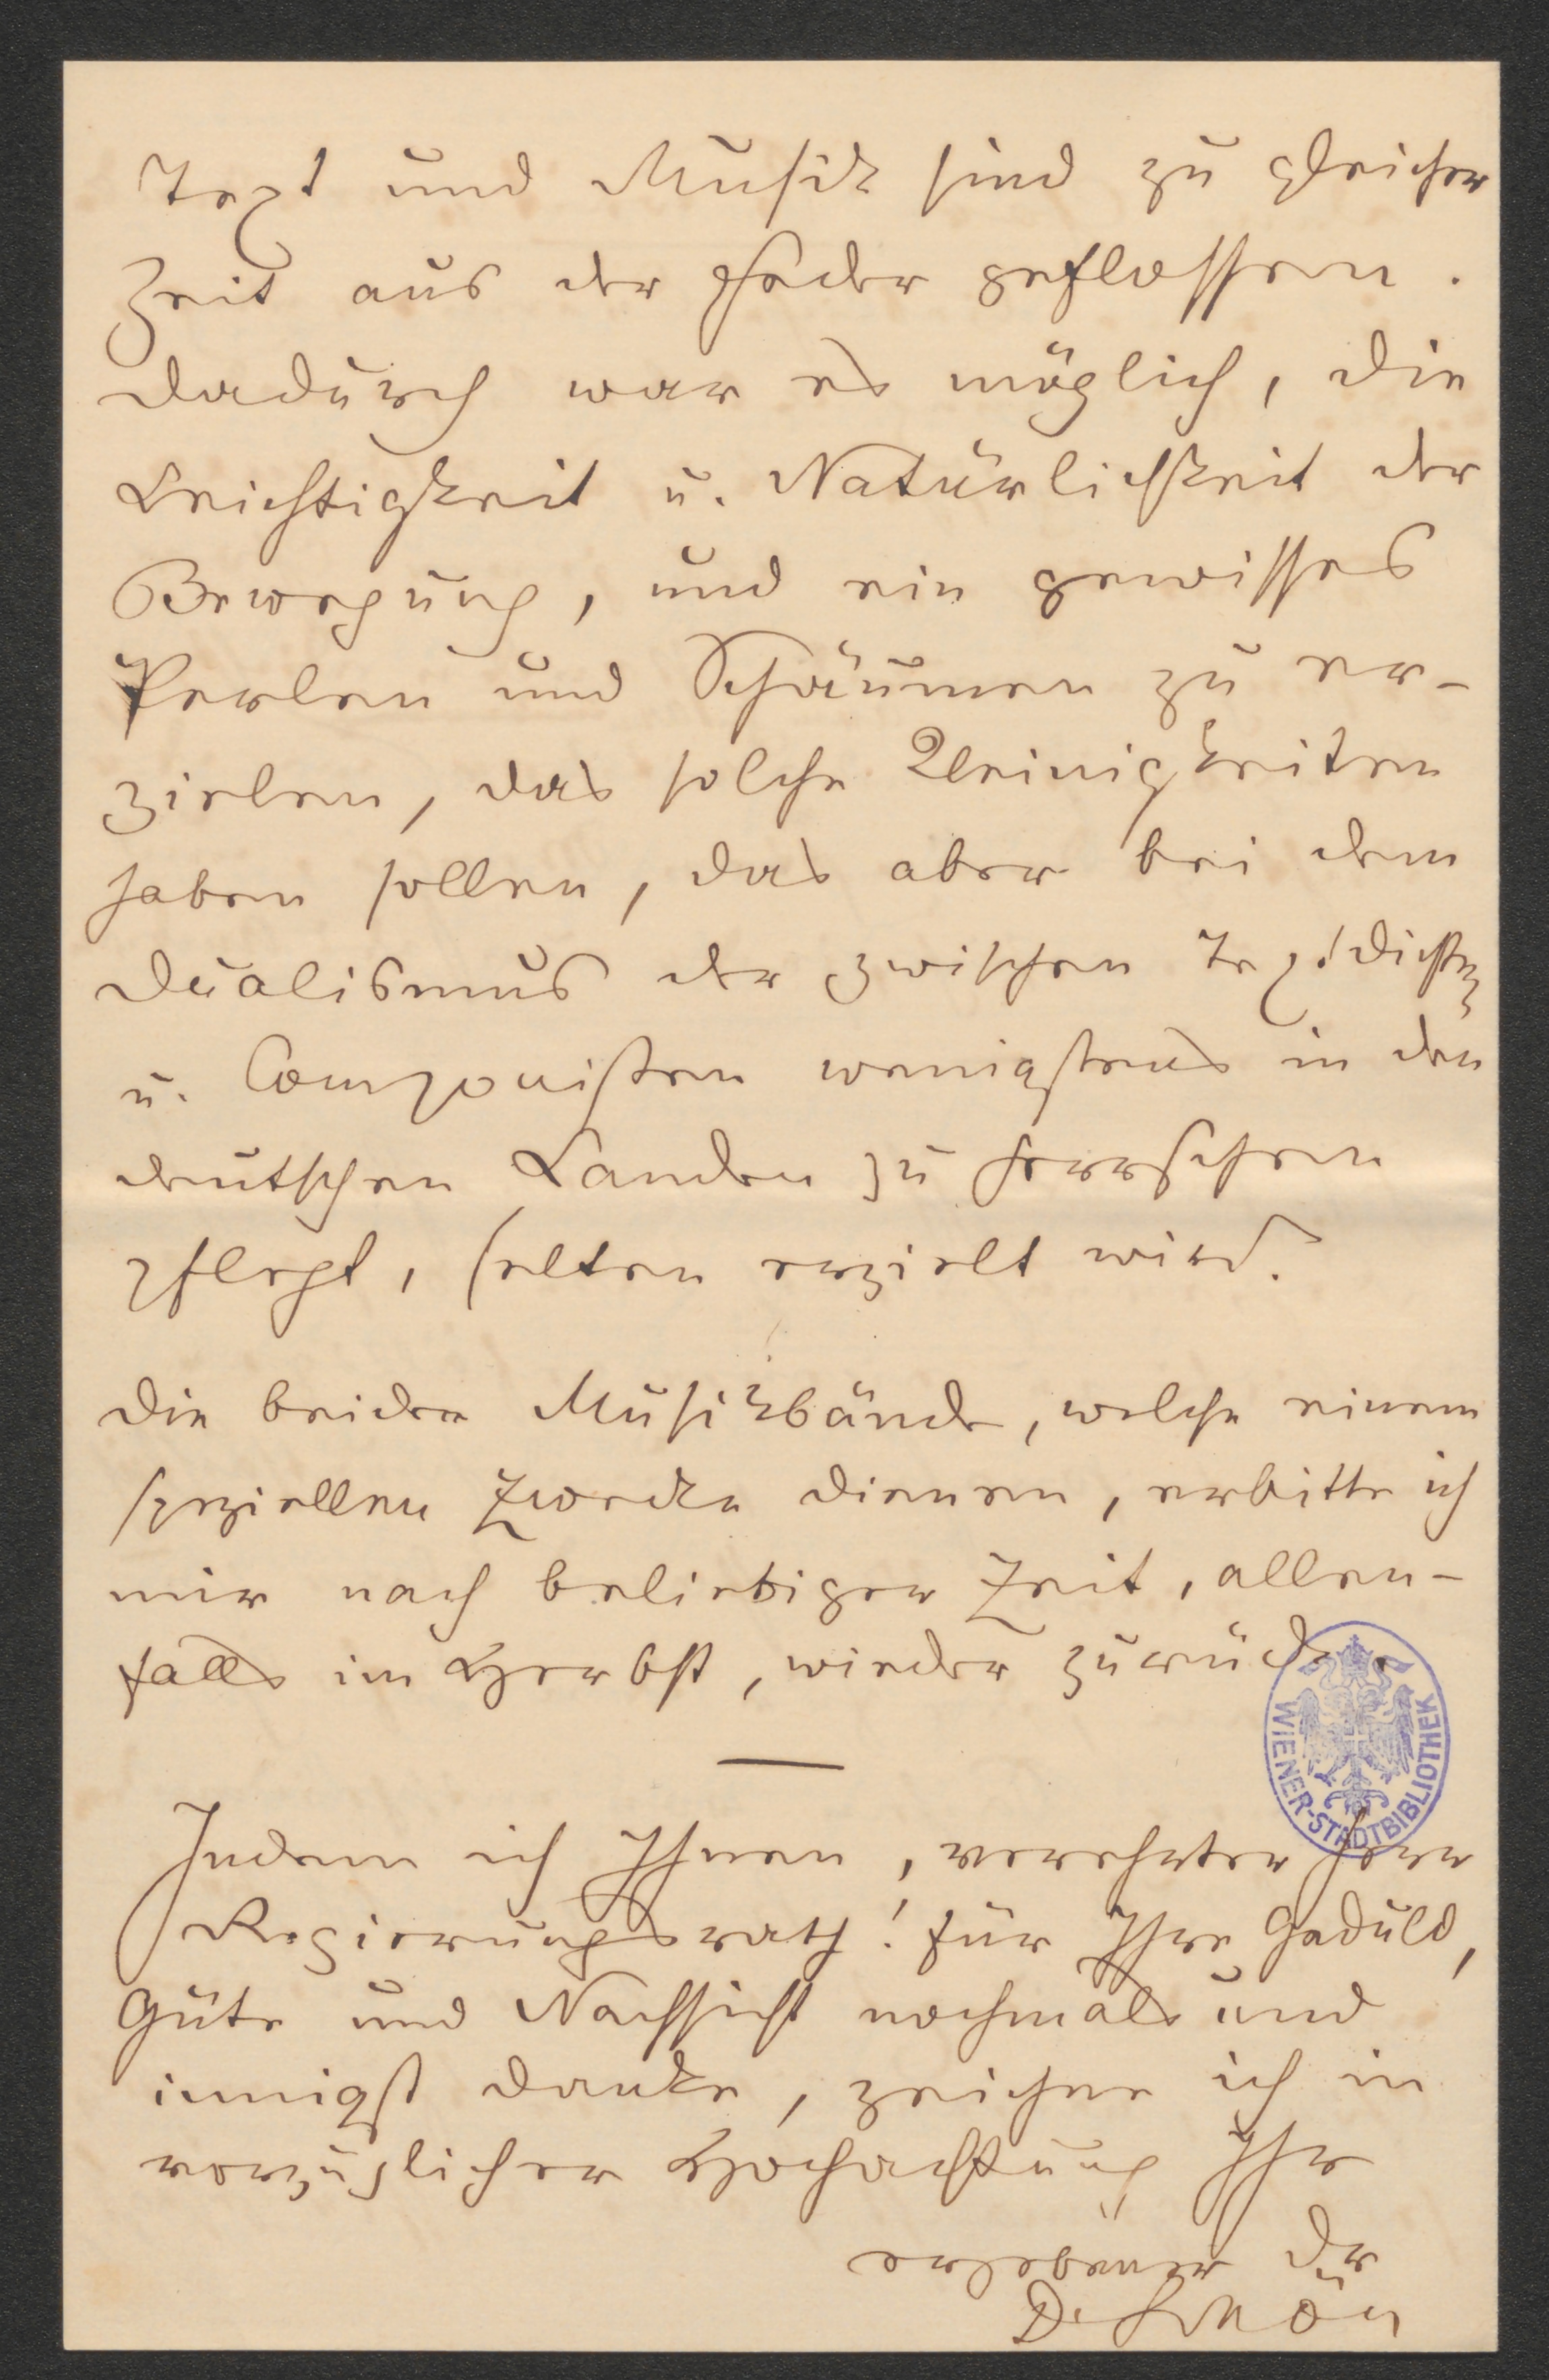 Text und Musik sind zu gleicher
Zeit aus der Feder geflossen.
Dadurch war es möglich, die
Leichtigkeit u. Natürlichkeit der
Bewegung, und ein gewisses
Perlen und Schäumen zu er-
zielen, das solche Kleinigkeiten
haben sollen, das aber bei dem
Dualismus der zwischen Textdichter
u. Componisten wenigstens in den
deutschen Landen zu herrschen
pflegt, selten erzielt wird.
Die beiden Musikbände, welche einem
speziellen Zwecke dienen, erbitte ich
mir nach beliebiger Zeit, allen-
falls im Herbst, wieder zurück.
WIENER-STADTBIBLIOTHEK
Indem ich Ihnen, verehrter Herr
Regierungsrath! für Ihre Geduld,
Güte und Nachsicht nochmals und
innigst danke, zeichne ich in
vorzüglicher Hochachtung Ihr
ergebener Dr
Schön